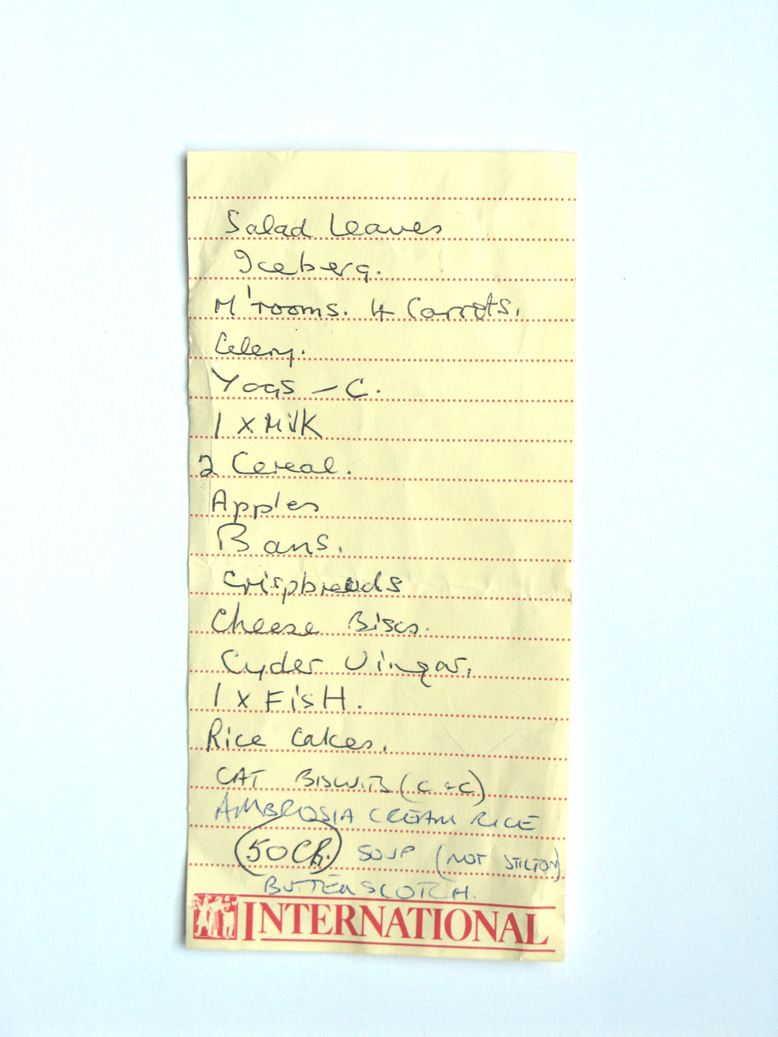 Salad Leaves
Iceberg.
M'rooms. 4 Carrots.
Celery.
Yogs - C.
1 x Milk
2 Cereal.
Apples
Bans.
Crispbreads
Cheese Biscs.
Cyder Vingar.
1 x FisH.
Rice Cakes.
CAT BISCUITS (C + C)
AMBROSIA CREAM RICE
SOUP (NOT STILTON)
BUTTERSCOTCH.
INTERNATIONAL